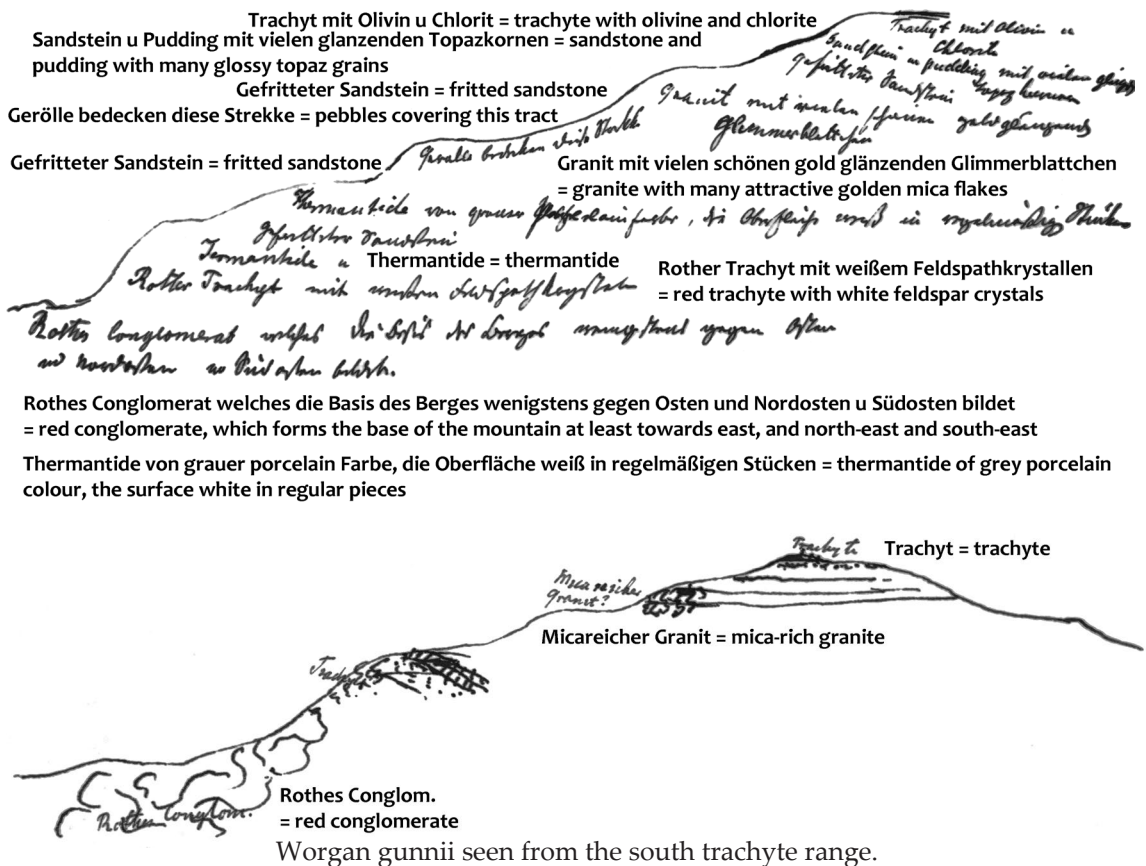 Trachyt mit Olivin u Chlorit = trachyte with olivine and chlorite
Trachyt mit Olivin u
Chlorit
Sandstein u Pudding mit vielen glanzenden Topazkornen = sandstone and
pudding with many glossy topaz grains
Sandstein u pudding mit vielen
Gefritteter Sandstein
Gefritteter Sandstein = fritted sandstone
Granit mit vielen schönen goldglänzend
Glimmerblattchen
Gerölle bedecken diese Strekke = pebbles covering this tract
Gerölle bedecken diese Strekke
Gefritteter Sandstein = fritted sandstone
Granit mit vielen schönen gold glänzenden Glimmerblattchen
= granite with many attractive golden mica flakes
Thermantide von grauer, die Oberfläche weiß in regelmäßig Stücken
Gefritteter Sandstein
Termantide u
Thermantide = thermantide
Rother Trachyt mit weißen
Rother Trachyt mit weißem Feldspathkrystallen
= red trachyte with white feldspar crystals
Rothes Conglomerat welches die Basis des Berges wenigstens gegen Osten
und Nordosten u Südosten bildet.
Rothes Conglomerat welches die Basis des Berges wenigstens gegen Osten und Nordosten u Südosten bildet
= red conglomerate, which forms the base of the mountain at least towards east, and north-east and south-east
Thermantide von grauer porcelain Farbe, die Oberfläche weiß in regelmäßigen Stücken = thermantide of grey porcelain
colour, the surface white in regular pieces
Trachyt
Trachyt = trachyte
Micareicher
Granit?
Micareicher Granit = mica-rich granite
Trachyt
Rothes Conglom.
Rothes Conglom.
= red conglomerate
Worgan gunnii seen from the south trachyte range.